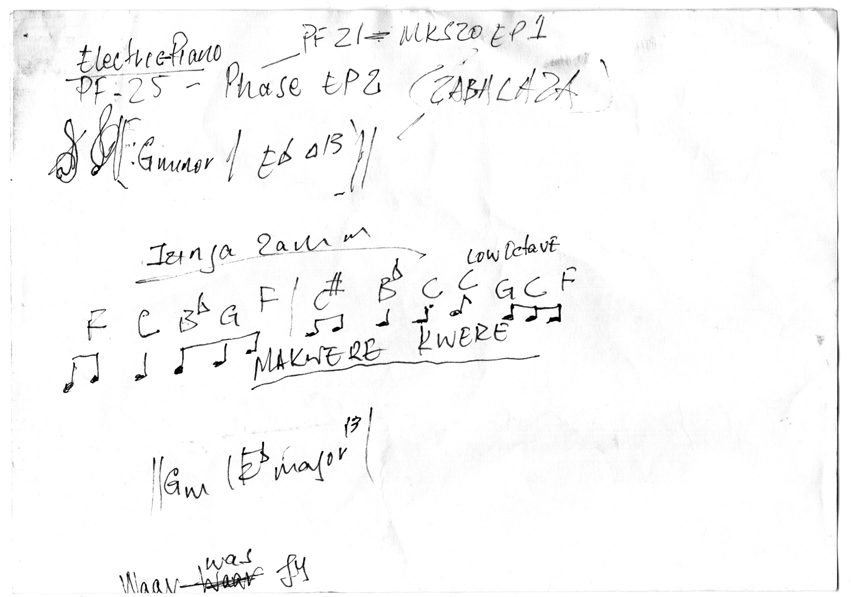 PF 21 = MKS20 EP1
Electric Piano
PF-25 - Phase EP2 (ZABALAZA)
Gminor / Eb Δ13 ||
Izinja Zam
Low Octave
F C Bb G F | C# Bb C C G C F
MAKWERE KWERE
|| Gm | Eb major 13 |
was
Waar